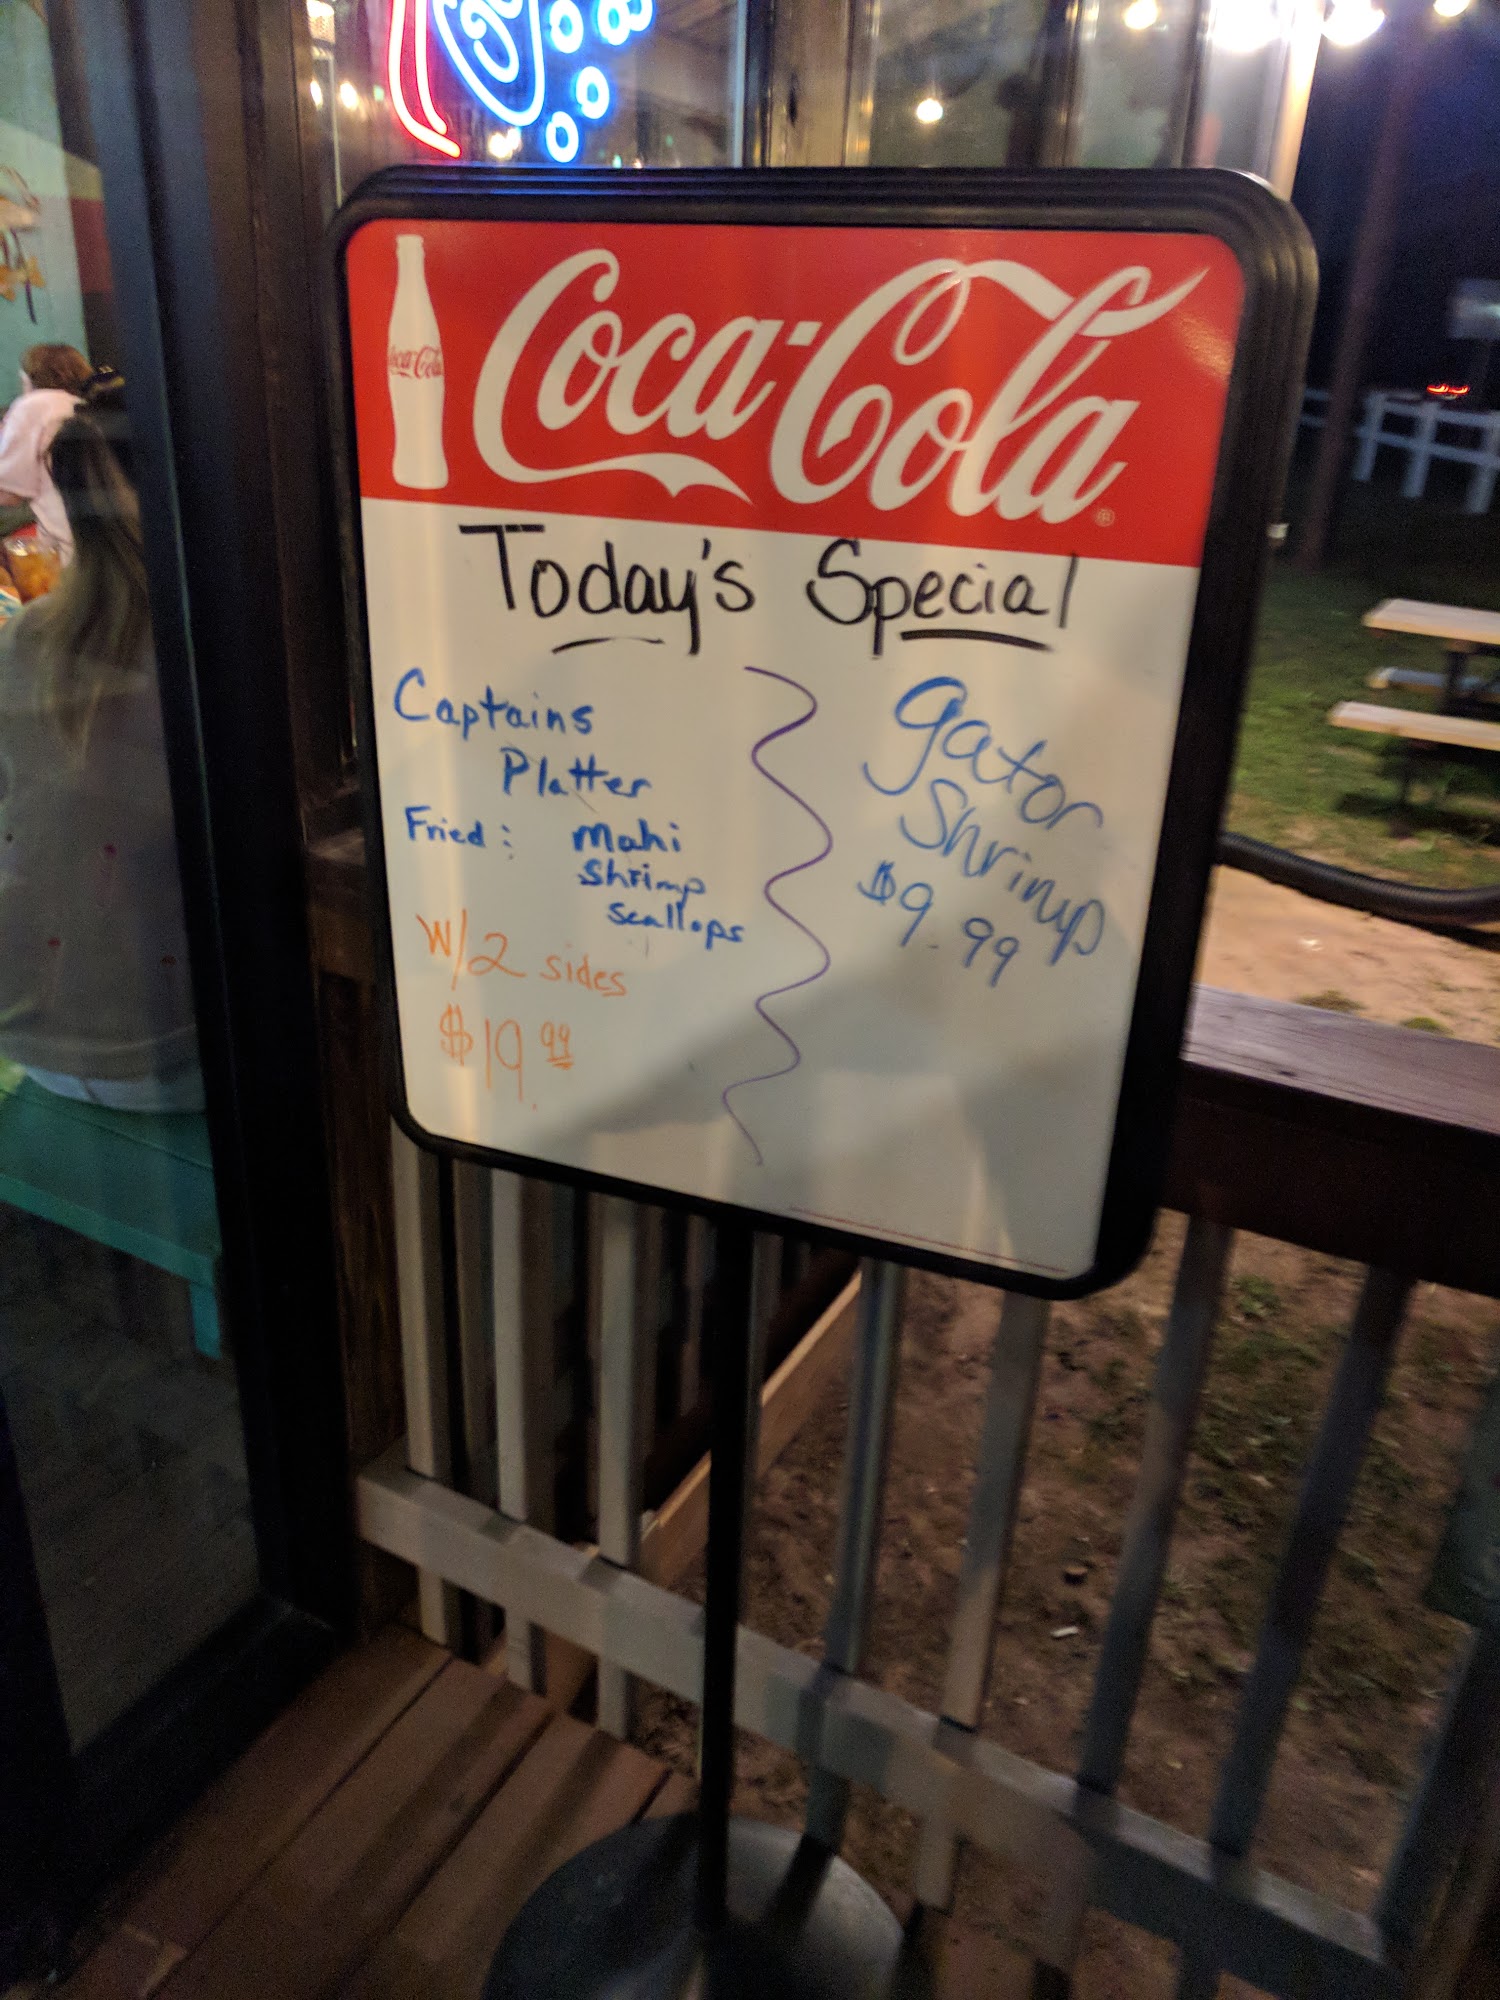 Coca-Cola
Coca-Cola
Today's Special
Captains
Platter
Fried: Mahi
Shrimp
Scallops
W/2 sides
$19.99
Gator
Shrimp
$9.99